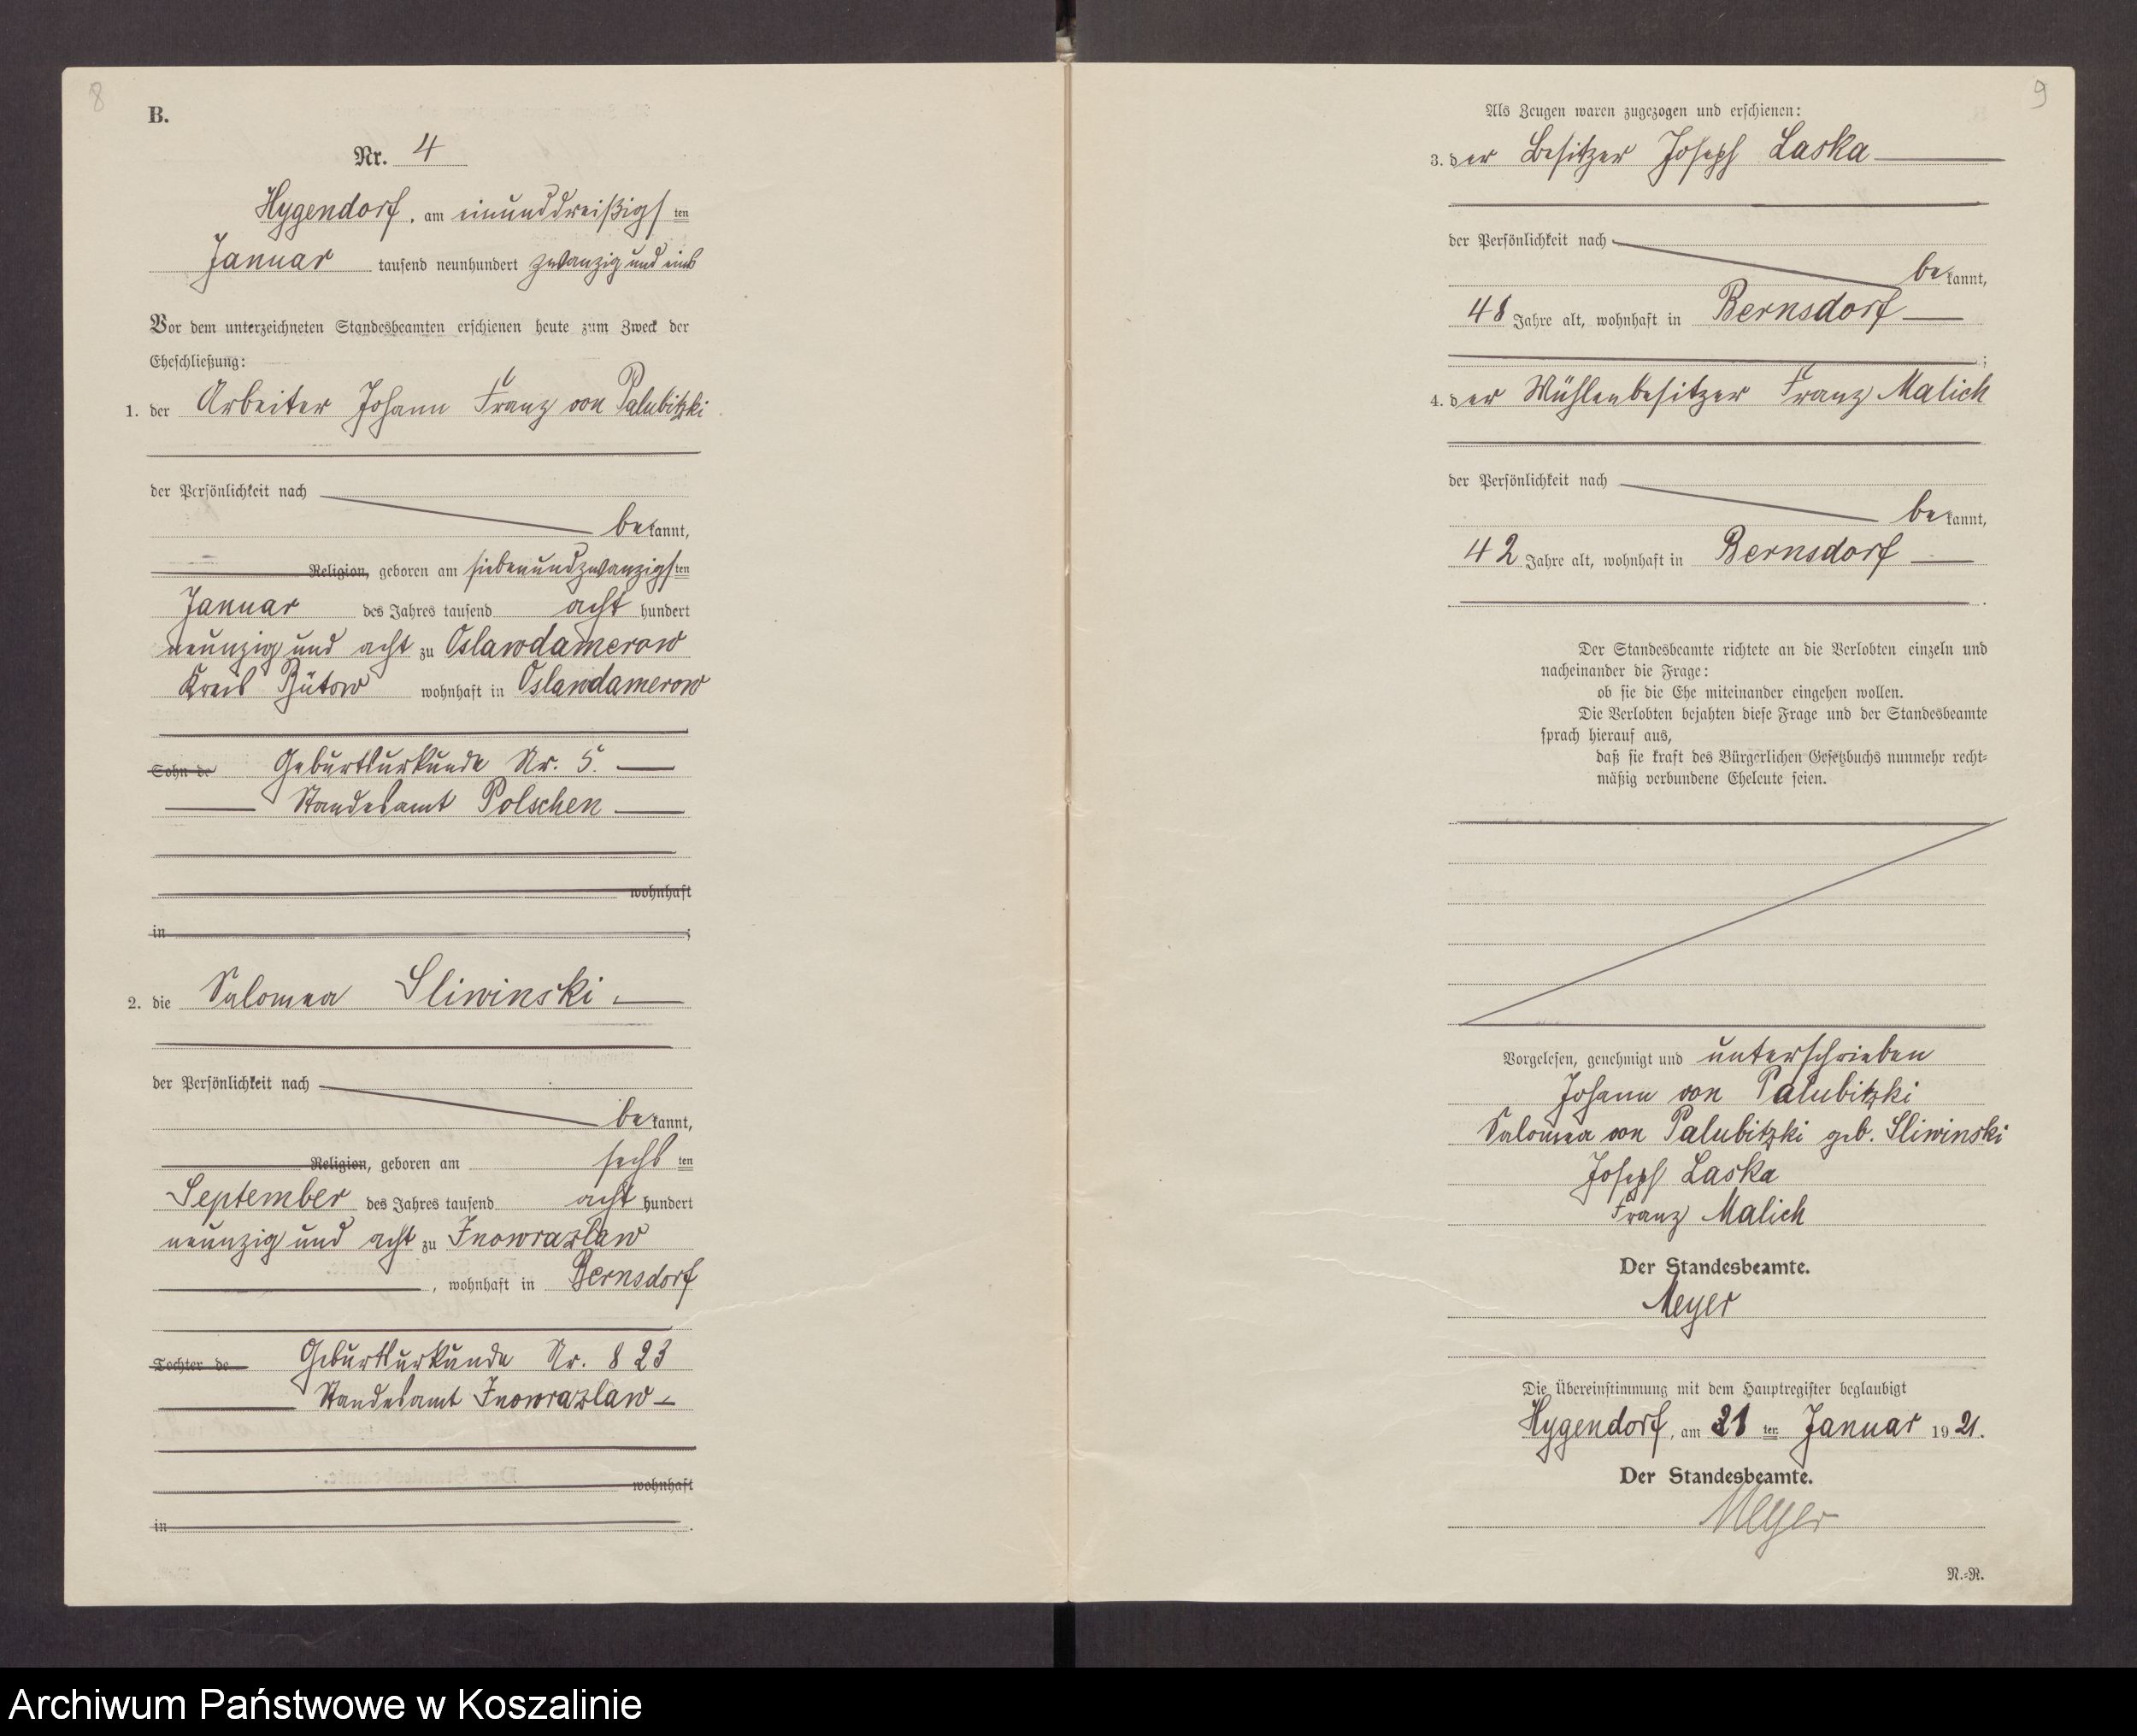 8
B.
Nr. 4
Hygendorf, am einunddreißigsten
Januar tausend neunhundert zwanzig und eins
Vor dem unterzeichneten Standesbeamten erschienen heute zum Zweck der
Eheschließung:
1. der Arbeiter Johann Franz von Palubitzki
der Persönlichkeit nach
bekannt,
Religion, geboren am siebenundzwanzigsten
Januar des Jahres tausend acht hundert
neunzig und acht zu Oslawdamerow
Kreis Bütow wohnhaft in Oslawdamerow
Sohn de Geburtsurkunde Nr. 5.
Standesamt Polschen
wohnhaft
in ;
2. die Salomea Sliwinski
der Persönlichkeit nach
bekannt,
Religion, geboren am sechsten
September des Jahres tausend acht hundert
neunzig und acht zu Inowrazlaw
, wohnhaft in Bernsdorf
Tochter de Geburtsurkunde Nr. 823
Standesamt Inowrazlaw
wohnhaft
in .
9
Als Zeugen waren zugezogen und erschienen:
3. der Besitzer Joseph Laska
der Persönlichkeit nach
bekannt,
48 Jahre alt, wohnhaft in Bernsdorf
;
4. der Mühlenbesitzer Franz Malich
der Persönlichkeit nach
bekannt,
42 Jahre alt, wohnhaft in Bernsdorf
.
Der Standesbeamte richtete an die Verlobten einzeln und
nacheinander die Frage:
ob sie die Ehe miteinander eingehen wollen.
Die Verlobten bejahten diese Frage und der Standesbeamte
sprach hierauf aus,
daß sie kraft des Bürgerlichen Gesetzbuchs nunmehr recht-
mäßig verbundene Eheleute seien.
Vorgelesen, genehmigt und unterschrieben
Johann von Palubitzki
Salomea von Palubitzki geb. Sliwinski
Joseph Laska
Franz Malich
Der Standesbeamte.
Meyer
Die Übereinstimmung mit dem Hauptregister beglaubigt
Hygendorf, am 31 ten Januar 1921.
Der Standesbeamte.
Meyer
N.-R.
Archiwum Państwowe w Koszalinie